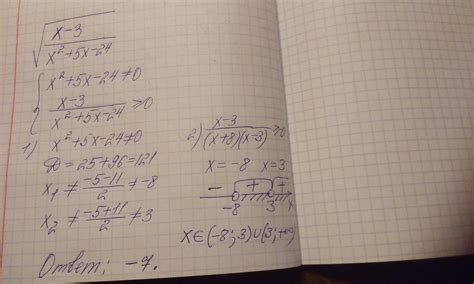 √((x-3)/(x²+5x-24))
{ x²+5x-24≠0
(x-3)/(x²+5x-24) ≥0
1) x²+5x-24≠0
D=25+96=121
x₁ ≠ (-5-11)/2 ≠ -8
x₂ ≠ (-5+11)/2 ≠ 3
Ответ: -7.
2) (x-3)/((x+8)(x-3)) ≥0
x=-8 x=3
- + +
-8 3 x
x∈(-8;3)∪(3;+∞)